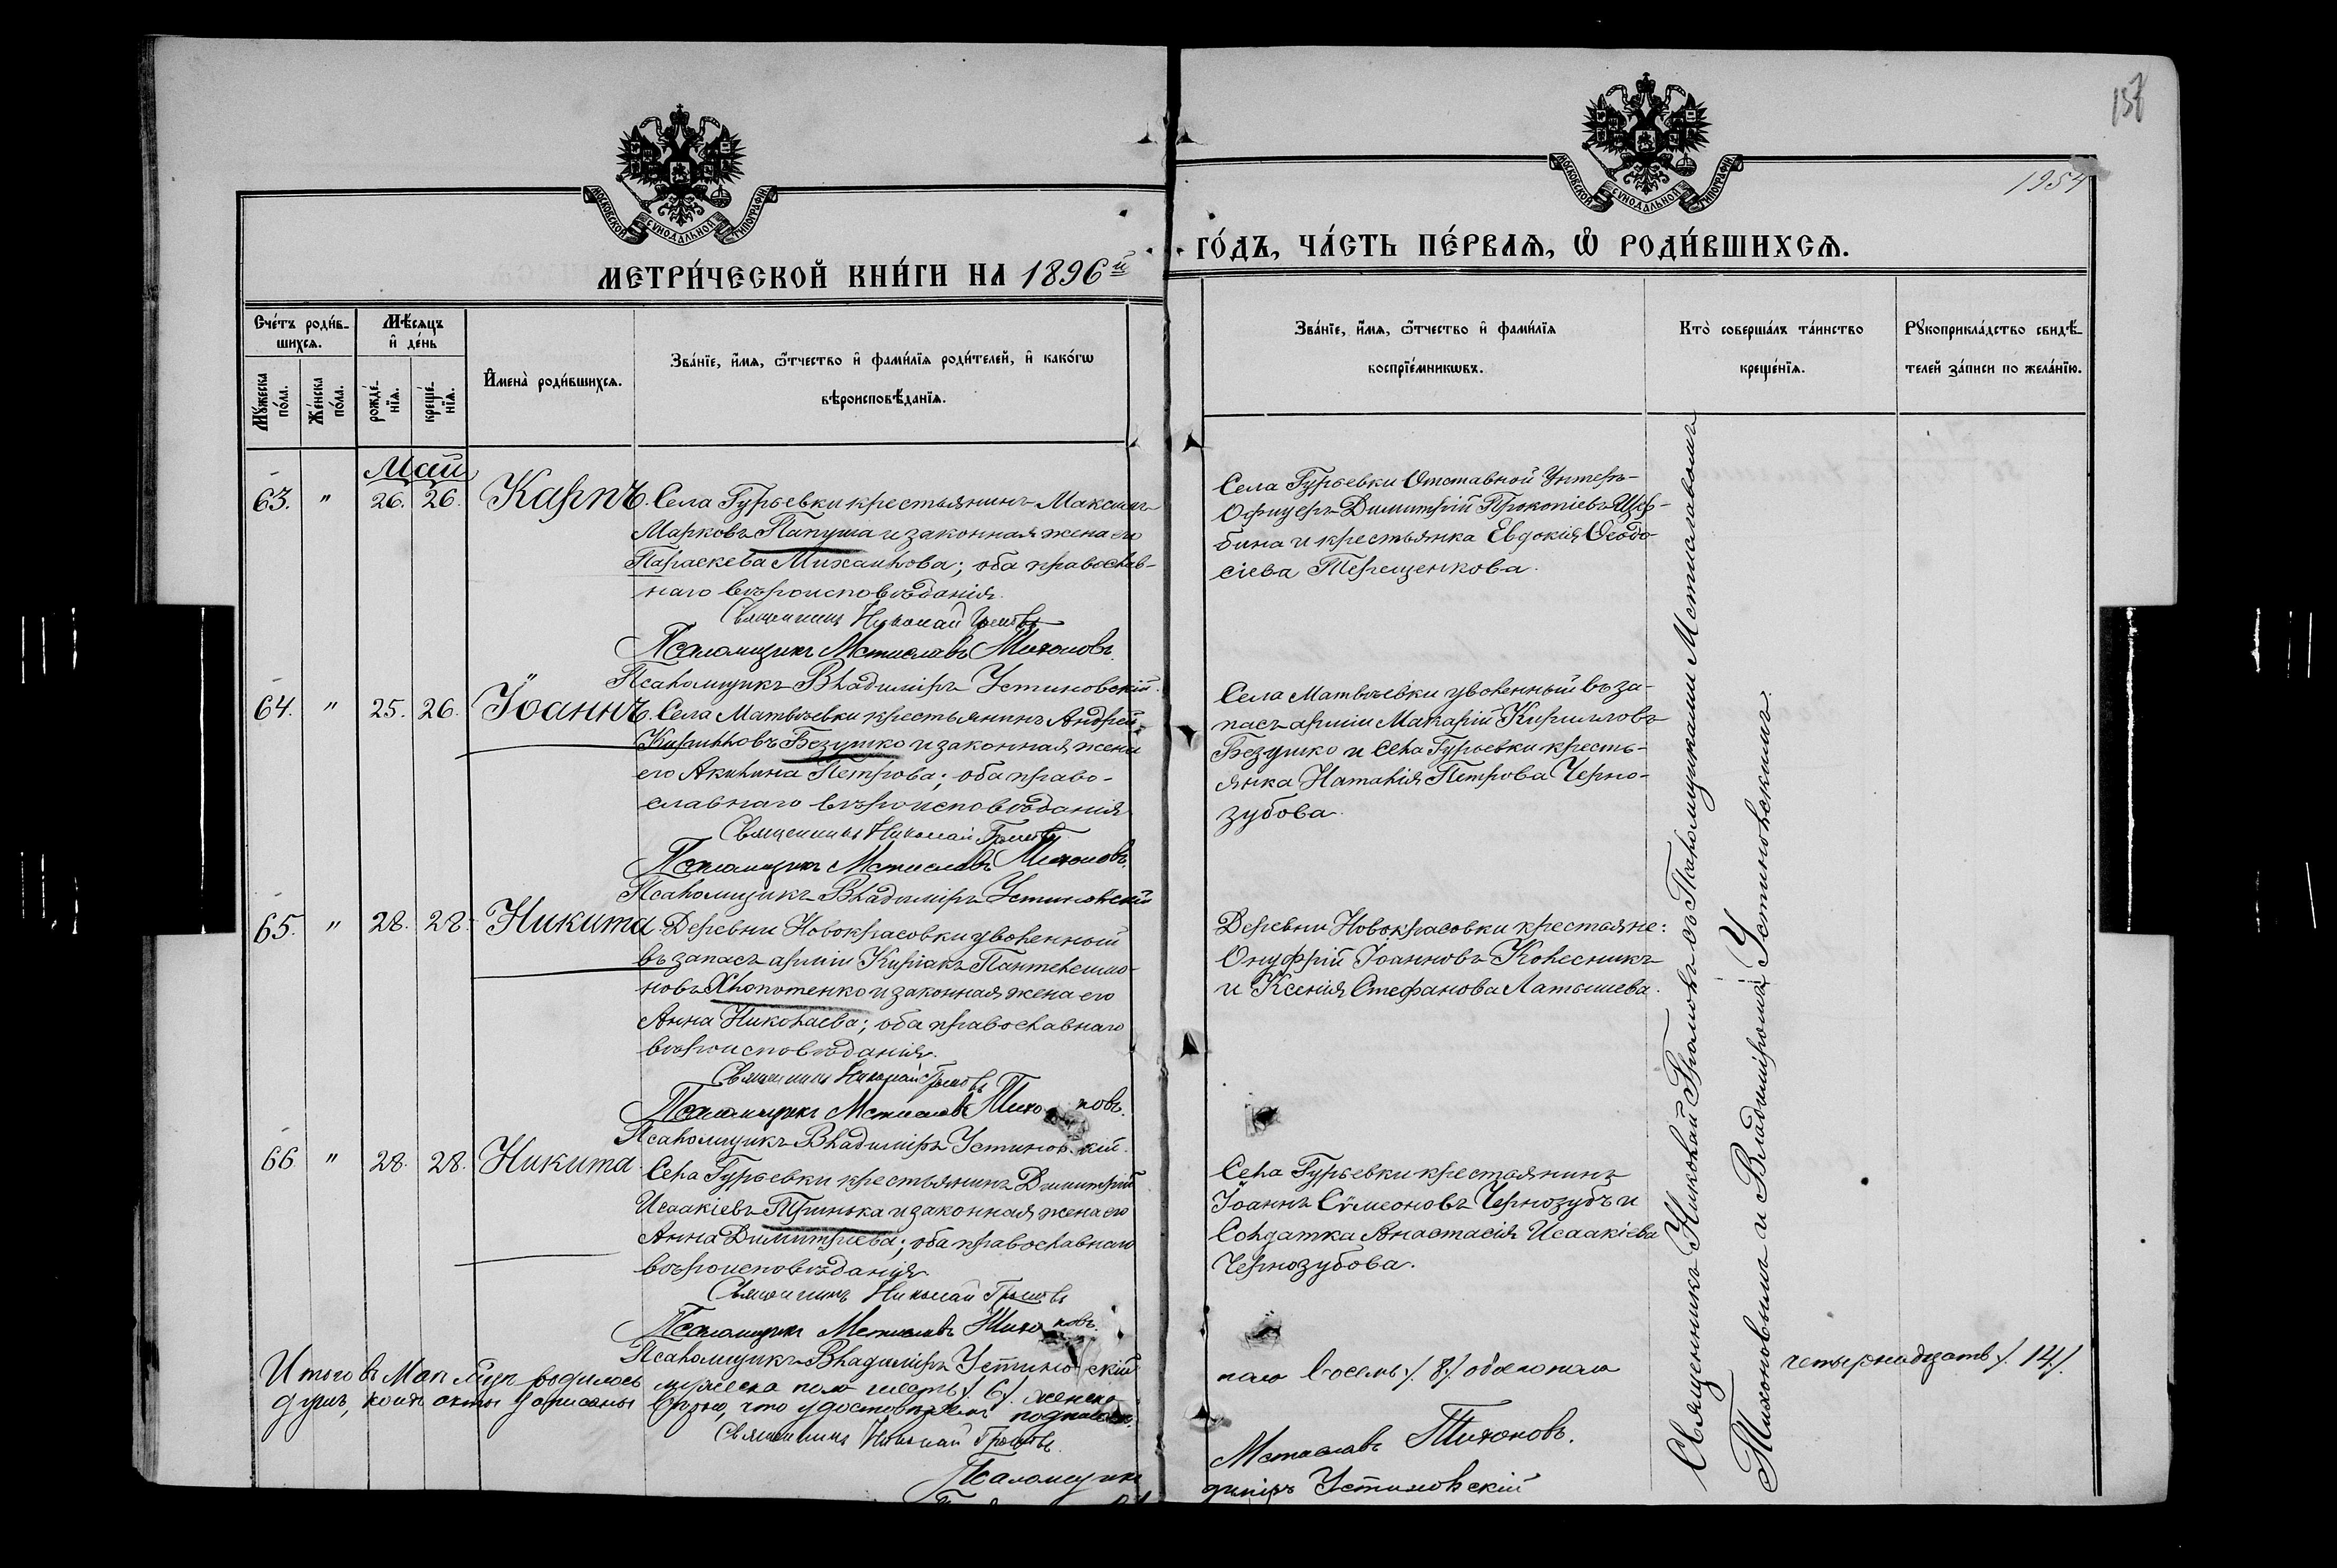 158
1954
МОСКОВСКОЙ СѴНОДАЛЬНОЙ ТИПОГРАФІИ
МОСКОВСКОЙ СѴНОДАЛЬНОЙ ТИПОГРАФІИ
МЕТРИ́ЧЕСКОЙ КНИ́ГИ НА 1896й
ГО́ДЪ, ЧА́СТЬ ПЕ́РВАЯ, Ѡ РОДИ́ВШИХСЯ.
Сче́тъ роди́в-
шихся.
Мꙋ́жеска по́ла.
Же́нска по́ла.
Мѣ́сяцъ
и҆ де́нь
рожде́-
нїя.
креще́-
нїя.
И҆мена̀ роди́вшихся.
Зва́нїе, и҆́мя, ѻ҆́тчество и҆ фами́лїя роди́телей, и҆ како́гѡ
вѣроисповѣ́данїя.
Зва́нїе, и҆́мя, ѻ҆́тчество и҆ фами́лїя
воспрїе́мникѡвъ.
Кто̀ соверша́лъ та́инство
креще́нїя.
Рꙋкоприкла́дство свидѣ́-
телей за́писи по жела́нїю.
Май
63. " 26. 26. Карпъ. Села Гурьевки крестьянинъ Максимъ
Марковъ Папуша и законная жена его
Параскева Михаилова; оба православ-
наго вѣроисповѣданія.
Священникъ Николай Громовъ
Псаломщикъ Мстиславъ Тихоновъ.
Псаломщикъ Владиміръ Устиновскій.
Села Гурьевки Отставной Унтеръ-
Офицеръ Димитрій Прокопіевъ Щер-
бина и крестьянка Евдокія Ѳеодо-
сіева Терещенкова.
64. " 25. 26. Іоаннъ. Села Матвѣевки крестьянинъ Андрей
Кирилловъ Безушко и законная жена
его Акилина Петрова; оба право-
славнаго вѣроисповѣданія
Священникъ Николай Громовъ
Псаломщикъ Мстиславъ Тихоновъ.
Псаломщикъ Владиміръ Устиновскій
Села Матвѣевки уволенный въ за-
пасъ арміи Макарій Кирилловъ
Безушко и села Гурьевки кресть-
янка Наталія Петрова Черно-
зубова.
65. " 28. 28. Никита Деревни Новокрасовки уволенный
въ запасъ арміи Киріакъ Пантелеимо-
новъ Хлопотенко и законная жена его
Анна Николаева; оба православнаго
вѣроисповѣданія.
Священникъ Николай Громовъ
Псаломщикъ Мстиславъ Тихоновъ.
Псаломщикъ Владиміръ Устинов кій.
Деревни Новокрасовки крестьяне:
Онуфрій Іоанновъ Колесникъ
и Ксенія Стефанова Латышева.
66. " 28. 28. Никита. Села Гурьевки крестьянинъ Димитрій
Исаакіевъ Принька и законная жена его
Анна Димитріева; оба православнаго
вѣроисповѣданія.
Священникъ Николай Громовъ
Псаломщикъ Мстиславъ Тихоновъ.
Псаломщикъ Владиміръ Устиновскій
Села Гурьевки крестьянинъ
Іоаннъ Сѵмеоновъ Чернозубъ и
Солдатка Анастасія Исаакіева
Чернозубова.
Священникъ Николай Громовъ съ Псаломщиками Мстиславомъ
Тихоновымъ и Владиміромъ Устиновскимъ.
Итого въ Маѣ родилось мужеска пола шесть /. 6/. женска
пола восемь /. 8/. обоего пола четырнадцать /. 14/.
душъ, коихъ акты записаны вѣрно, что удостовѣряемъ
Священникъ Николай Громовъ.
Псаломщикъ Мстиславъ Тихоновъ.
диміръ Устиновскій